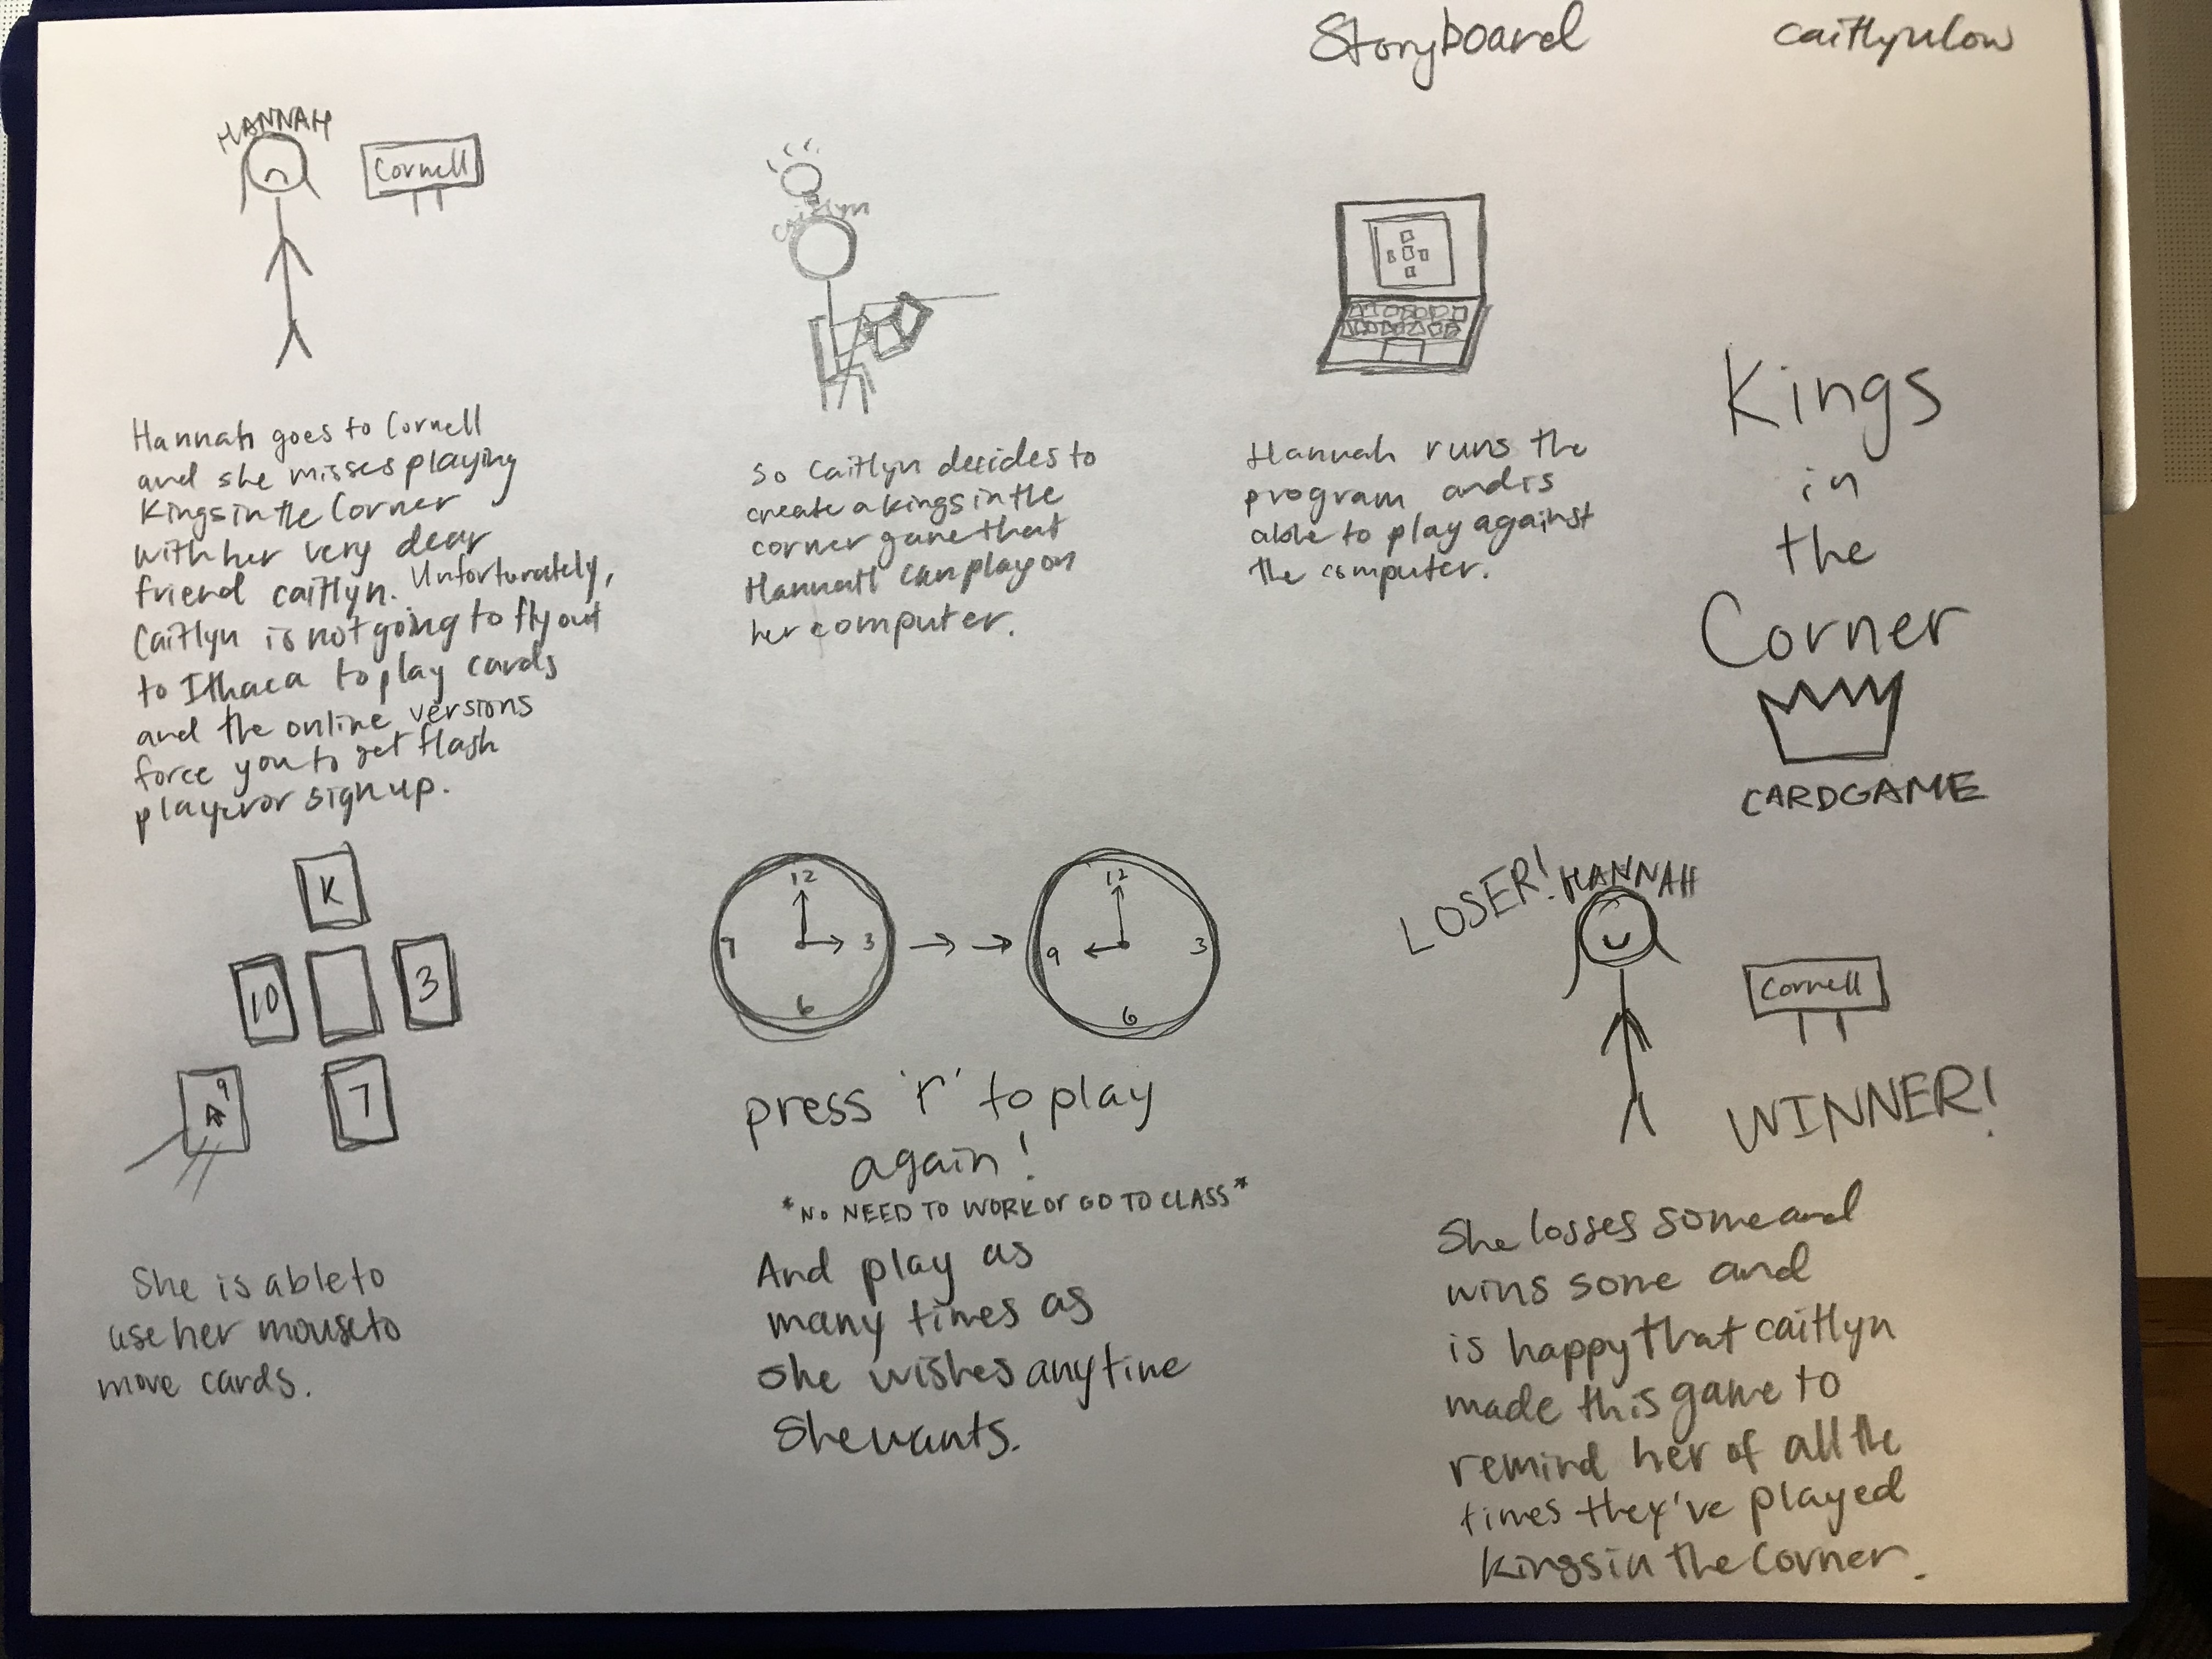 Storyboard
caitlynlow
HANNAH
Cornell
Hannah goes to Cornell
and she misses playing
Kings in the Corner
with her very dear
friend caitlyn. Unfortunately,
Caitlyn is not going to fly out
to Ithaca to play cards
and the online versions
force you to get flash
player or sign up.
caitlyn
so caitlyn decides to
create a kings in the
corner game that
Hannah can play on
her computer.
Hannah runs the
program and is
able to play against
the computer.
Kings
in
the
Corner
CARDGAME
K
10
3
7
9
She is able to
use her mouse to
move cards.
12
3
6
9
12
3
6
press 'r' to play
again!
*NO NEED TO WORK OR GO TO CLASS*
And play as
many times as
she wishes anytime
She wants.
LOSER!
HANNAH
Cornell
WINNER!
She losses some and
wins some and
is happy that caitlyn
made this game to
remind her of all the
times they've played
Kings in the Corner.